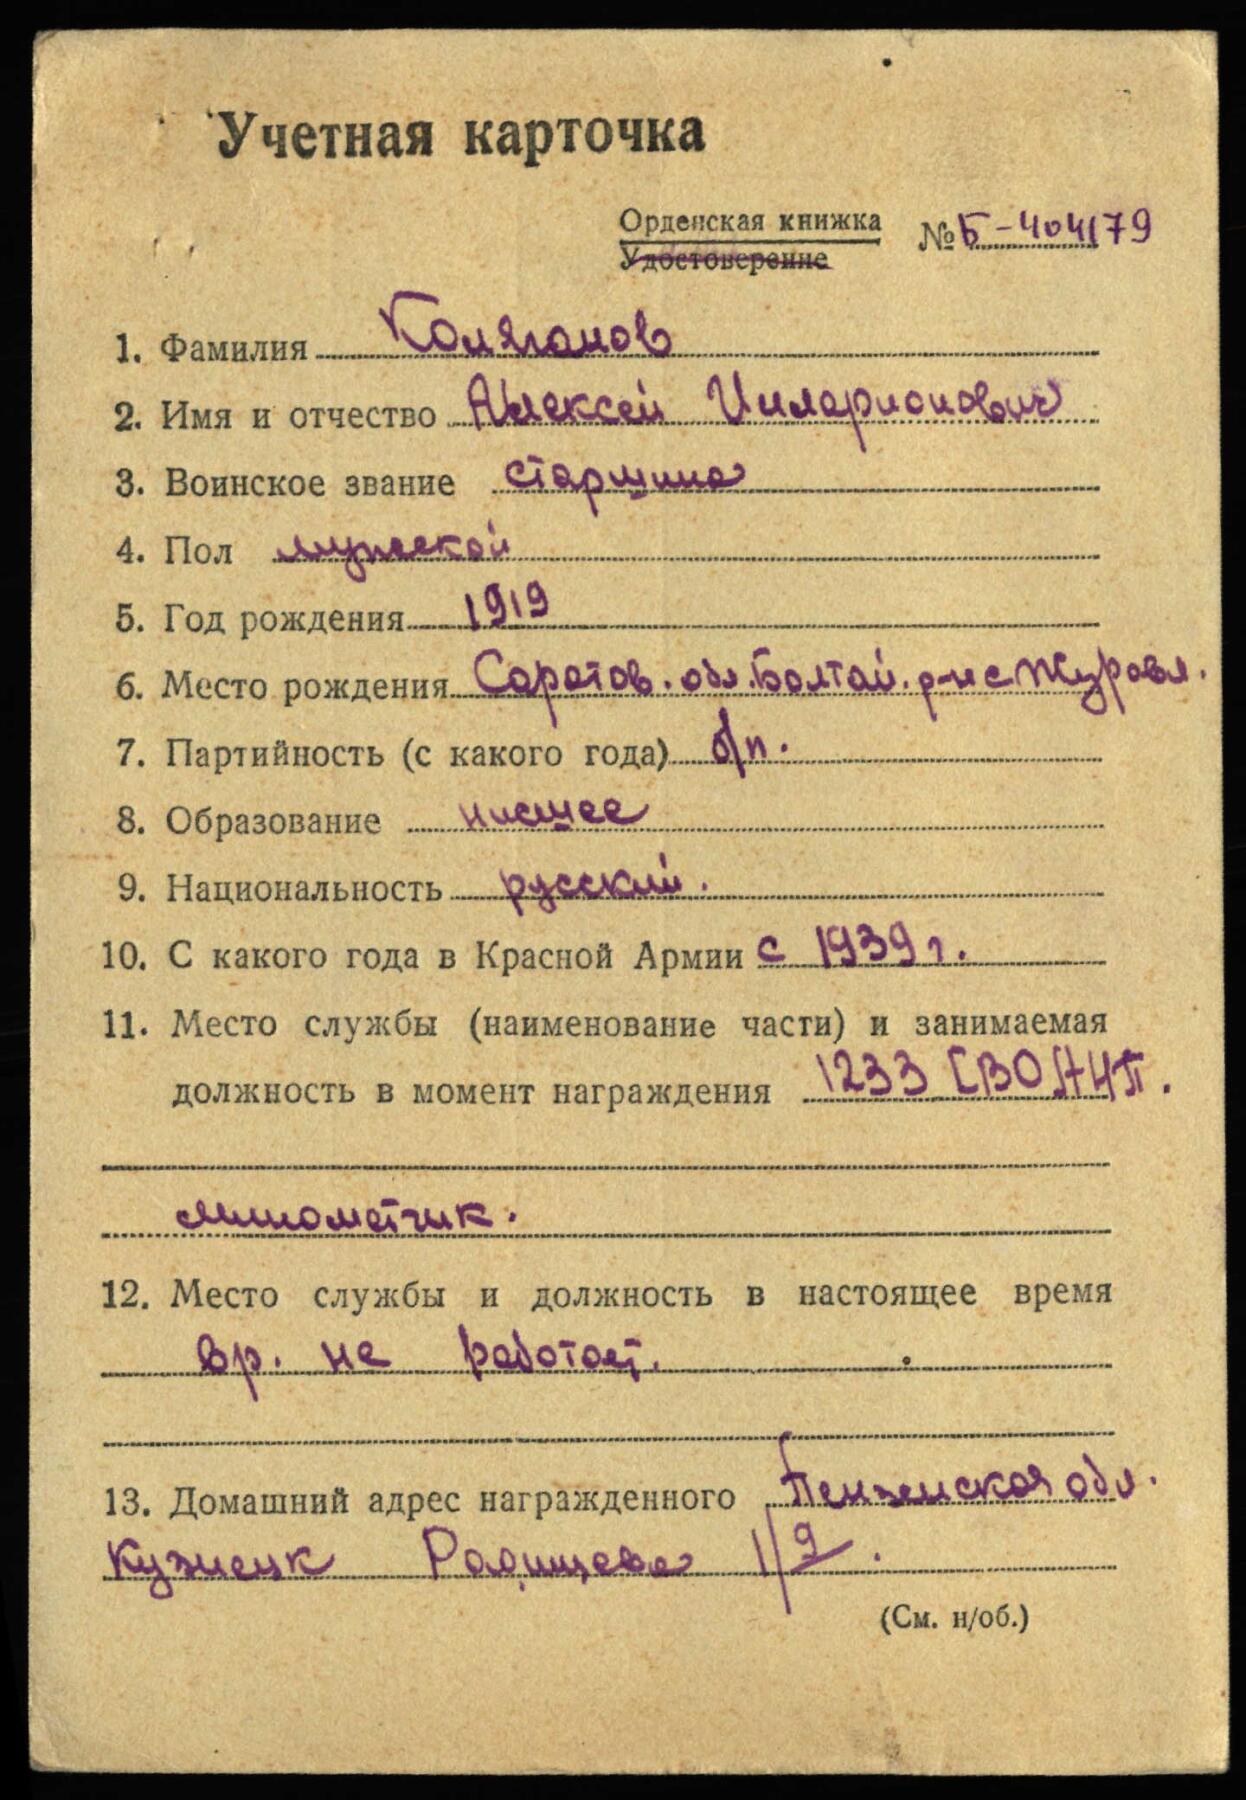 Учетная карточка
Орденская книжка № Б-404179
Удостоверение
1. Фамилия Коляганов
2. Имя и отчество Алексей Илларионович
3. Воинское звание старшина
4. Пол мужской
5. Год рождения 1919
6. Место рождения Саратов. обл. Балтай. р-н с Журавл.
7. Партийность (с какого года) б/п.
8. Образование нисшее
9. Национальность русский.
10. С какого года в Красной Армии с 1939 г.
11. Место службы (наименование части) и занимаемая
должность в момент награждения 1233
минометчик.
12. Место службы и должность в настоящее время
вр. не работает.
13. Домашний адрес награжденного Пензенская обл.
Кузнецк Радищева 1/9.
(См. н/об.)